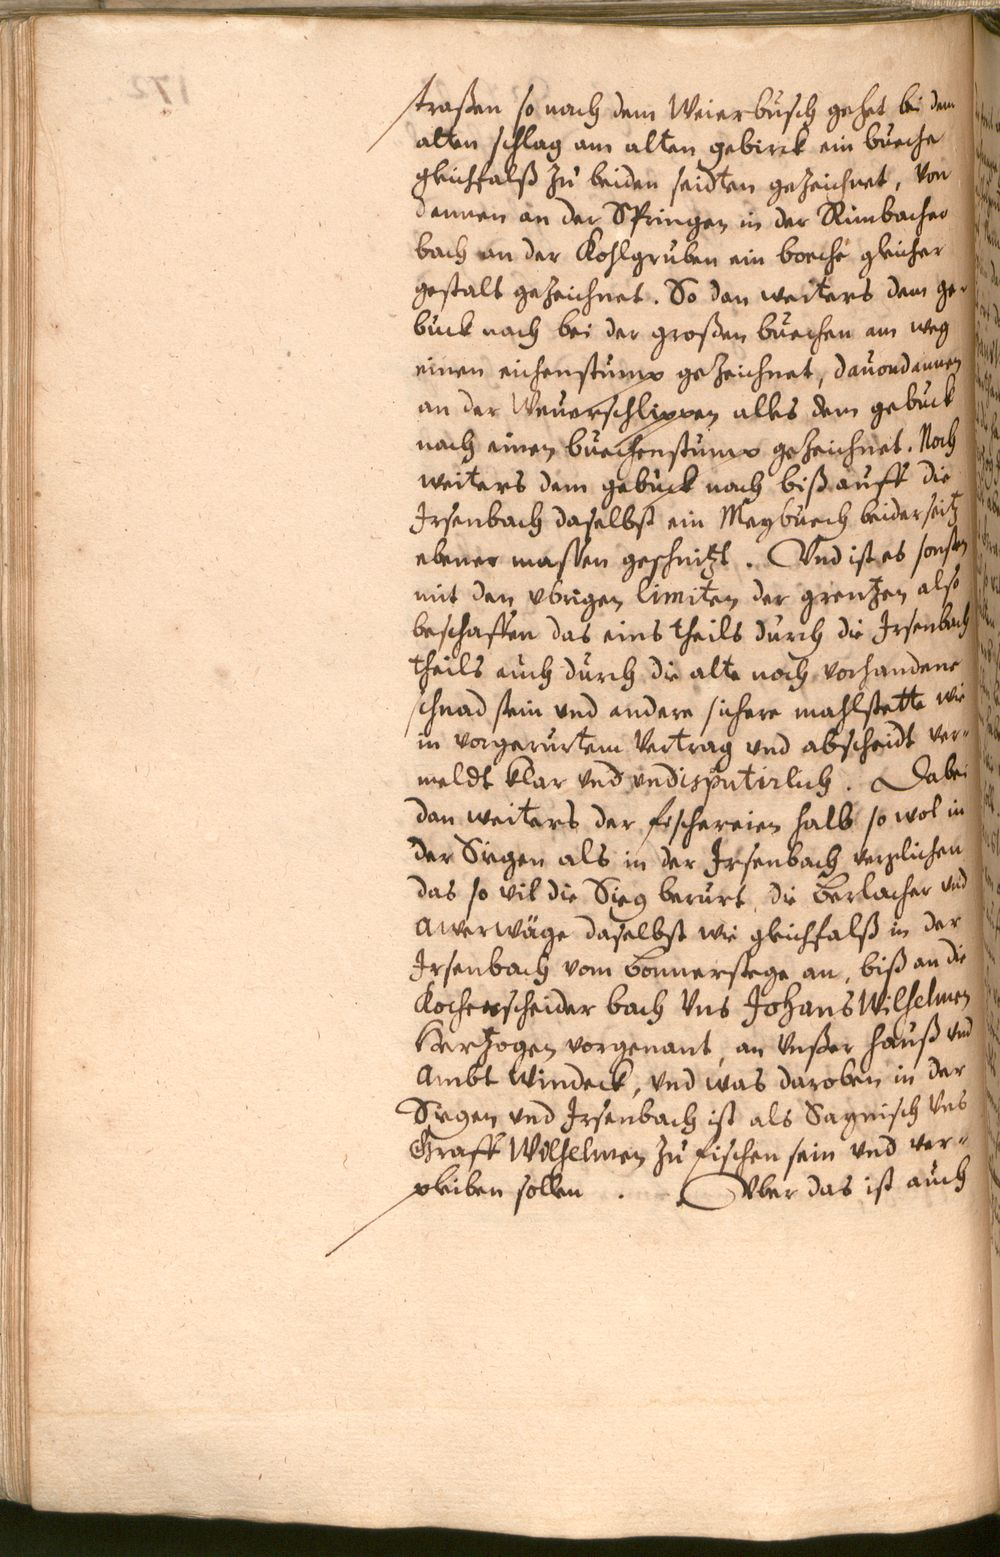 straßen so nach dem Weierbusch gehet bei dem
alten schlag am alten gebirck ein bueche
gleichfalß zu beiden seidten gezeichnet, von
dennen an der Springen in der Rimbacher
bach an der Kohlgruben ein boeche gleicher
gestalt gezeichnet. So dan weiters dem ge-
buck nach bei der großen buechen am weg
einen eichenstump gezeichnet, dauondannen
an der Weuerschlippen alles dem gebuck
nach einen buechenstump gezeichnet. Noch
weiters dem gebuck nach biß auff die
Irsenbach daselbst ein Meybuech beiderseitz
ebener massen geschnitzt. Vnd ist es sonsten
mit den vbrigen limiten der grentzen also
beschaffen das eins theils durch die Irsenbach
theils auch durch die alte noch vorhandene
schnad stein vnd andere sichere mahlstette wie
in vorgerurtem Vertrag vnd abscheidt ver-
meldt klar vnd vndisputirlich. Dabei
dan weiters der fischereien halb so wol in
der Siegen als in der Irsenbach verglichen
das so vil die Sieg berurt, die Berlacher vnd
Awerwäge daselbst wie gleichfalß in der
Irsenbach vom Bonnerstege an, biß an die
Kocherscheider bach Vns Johans Wilhelmen
Hertzogen vorgenant, an Vnßer hauß vnd
Ambt Windeck, vnd was daroben in der
Siegen vnd Irsenbach ist als Saynisch Vns
Graff Wilhelmen zu fischen sein vnd ver-
pleiben sollen. Vber das ist auch
172